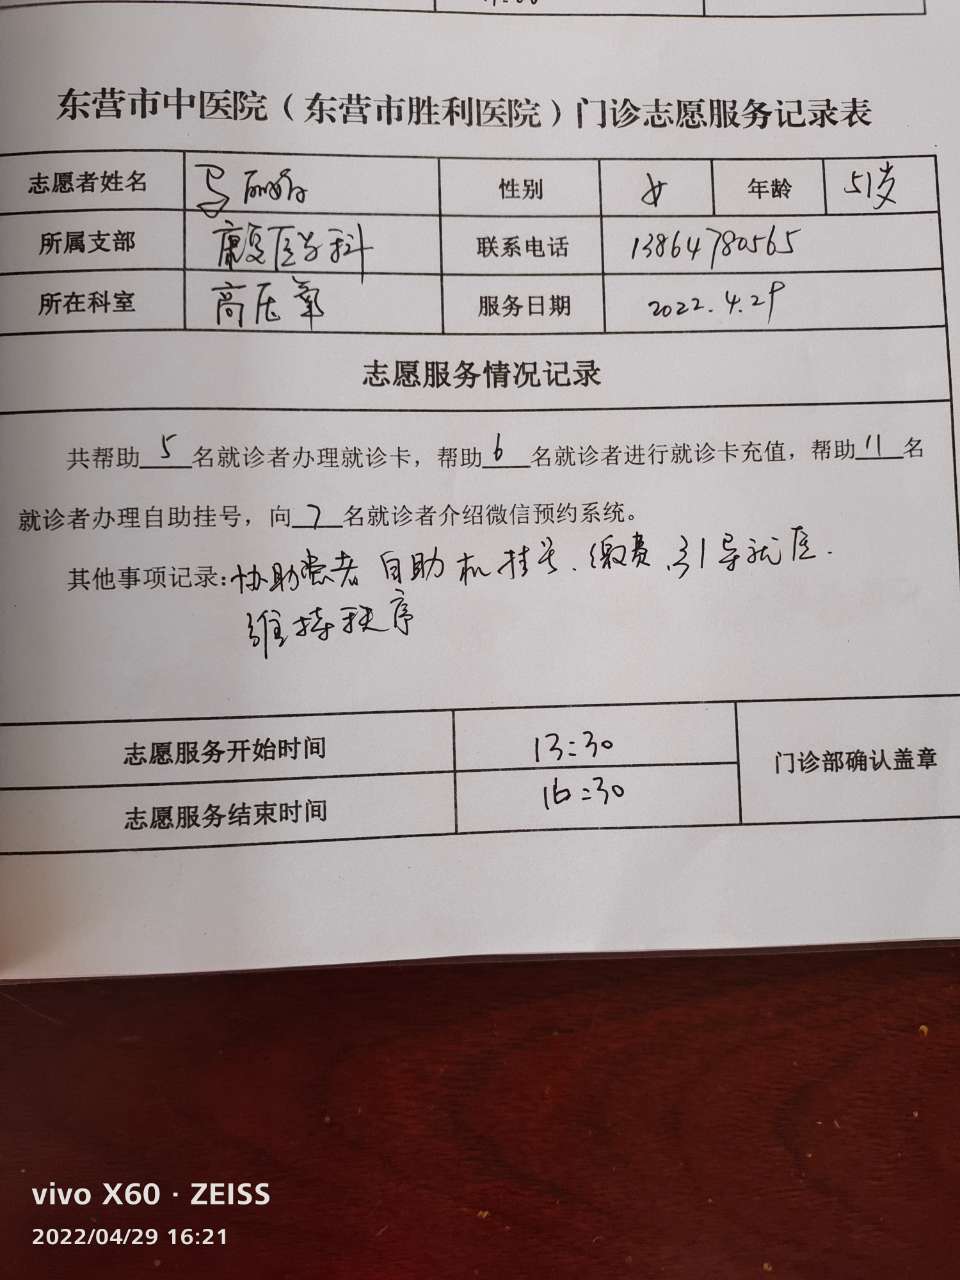 东营市中医院（东营市胜利医院）门诊志愿服务记录表
志愿者姓名 马丽 性别 女 年龄 51岁
所属支部 康复医学科 联系电话 13864780565
所在科室 高压氧 服务日期 2022.4.29
志愿服务情况记录
共帮助5名就诊者办理就诊卡，帮助6名就诊者进行就诊卡充值，帮助11名
就诊者办理自助挂号，向7名就诊者介绍微信预约系统。
其他事项记录：协助患者自助机挂号、缴费、引导就医.
维持秩序
志愿服务开始时间 13:30 门诊部确认盖章
志愿服务结束时间 16:30
vivo X60 · ZEISS
2022/04/29 16:21